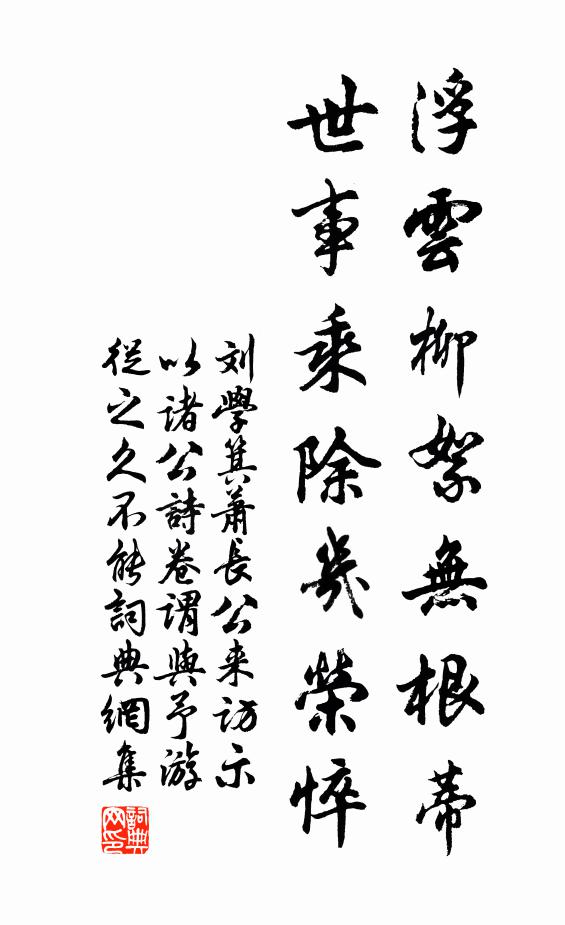 浮雲柳絮無根蒂
世事乘除幾榮悴
刘學箕蕭長公来訪示
以诸公詩卷謂與予游
從之久不能詞典網集
詞典
网印